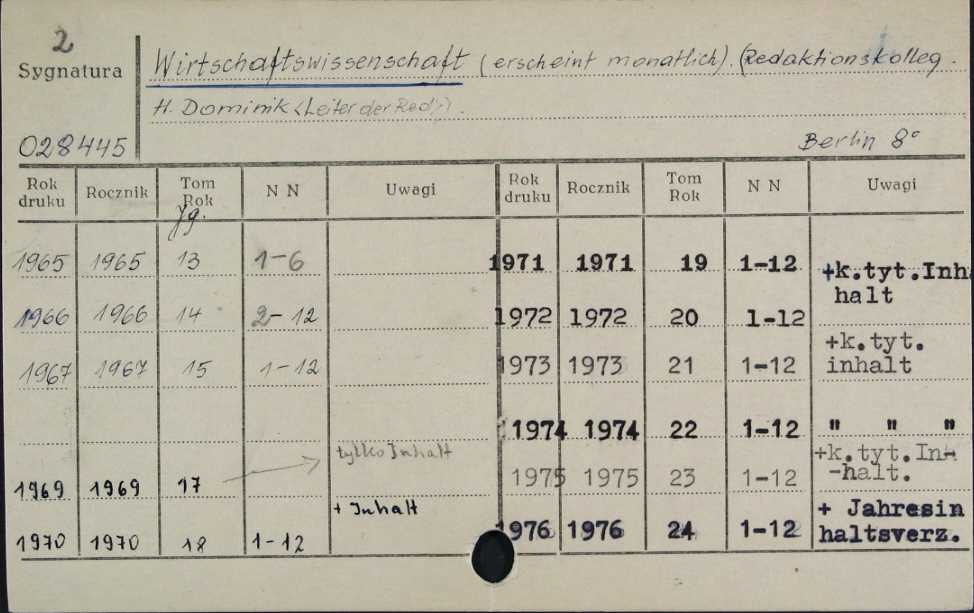 2
Sygnatura
Wirtschaftswissenschaft (erscheint monatlich). (Redaktionskolleg.
H. Dominik <Leiter der Red>).
028445
Berlin 8°
Rok druku Rocznik Tom Rok N N Uwagi Rok druku Rocznik Tom Rok N N Uwagi
Jg.
1965 1965 13 1-6 1971 1971 19 1-12 +k.tyt.Inha
halt
1966 1966 14 2-12 1972 1972 20 1-12
+k.tyt.
1967 1967 15 1-12 1973 1973 21 1-12 inhalt
1974 1974 22 1-12 " " "
tylko Inhalt +k.tyt.In
1969 1969 17 1975 1975 23 1-12 -halt.
+ Inhalt + Jahresin
1970 1970 18 1-12 1976 1976 24 1-12 haltsverz.